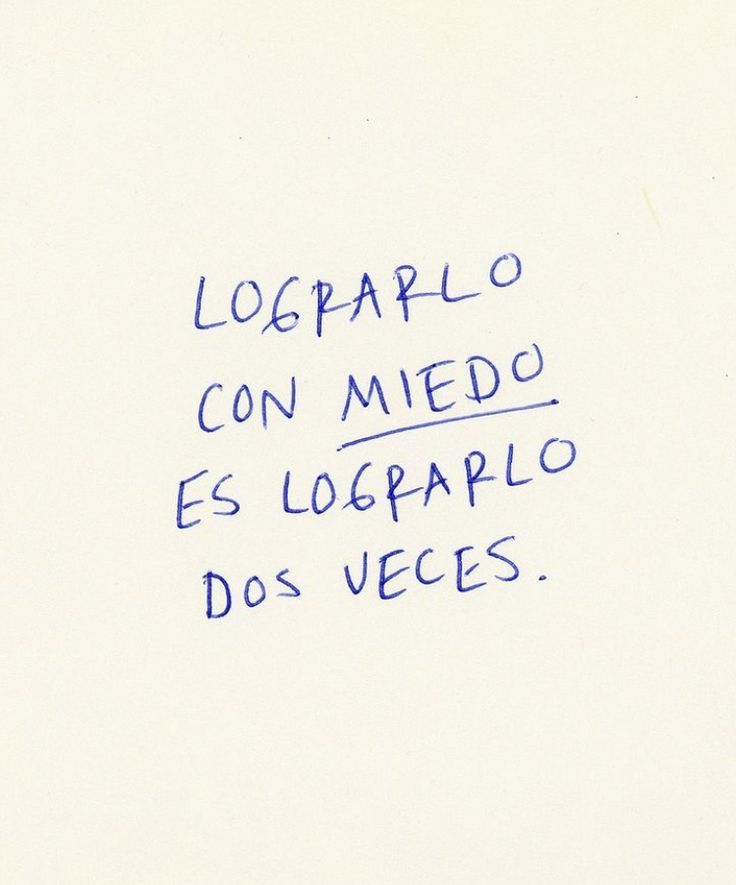 LOGRARLO
CON MIEDO
ES LOGRARLO
DOS VECES.